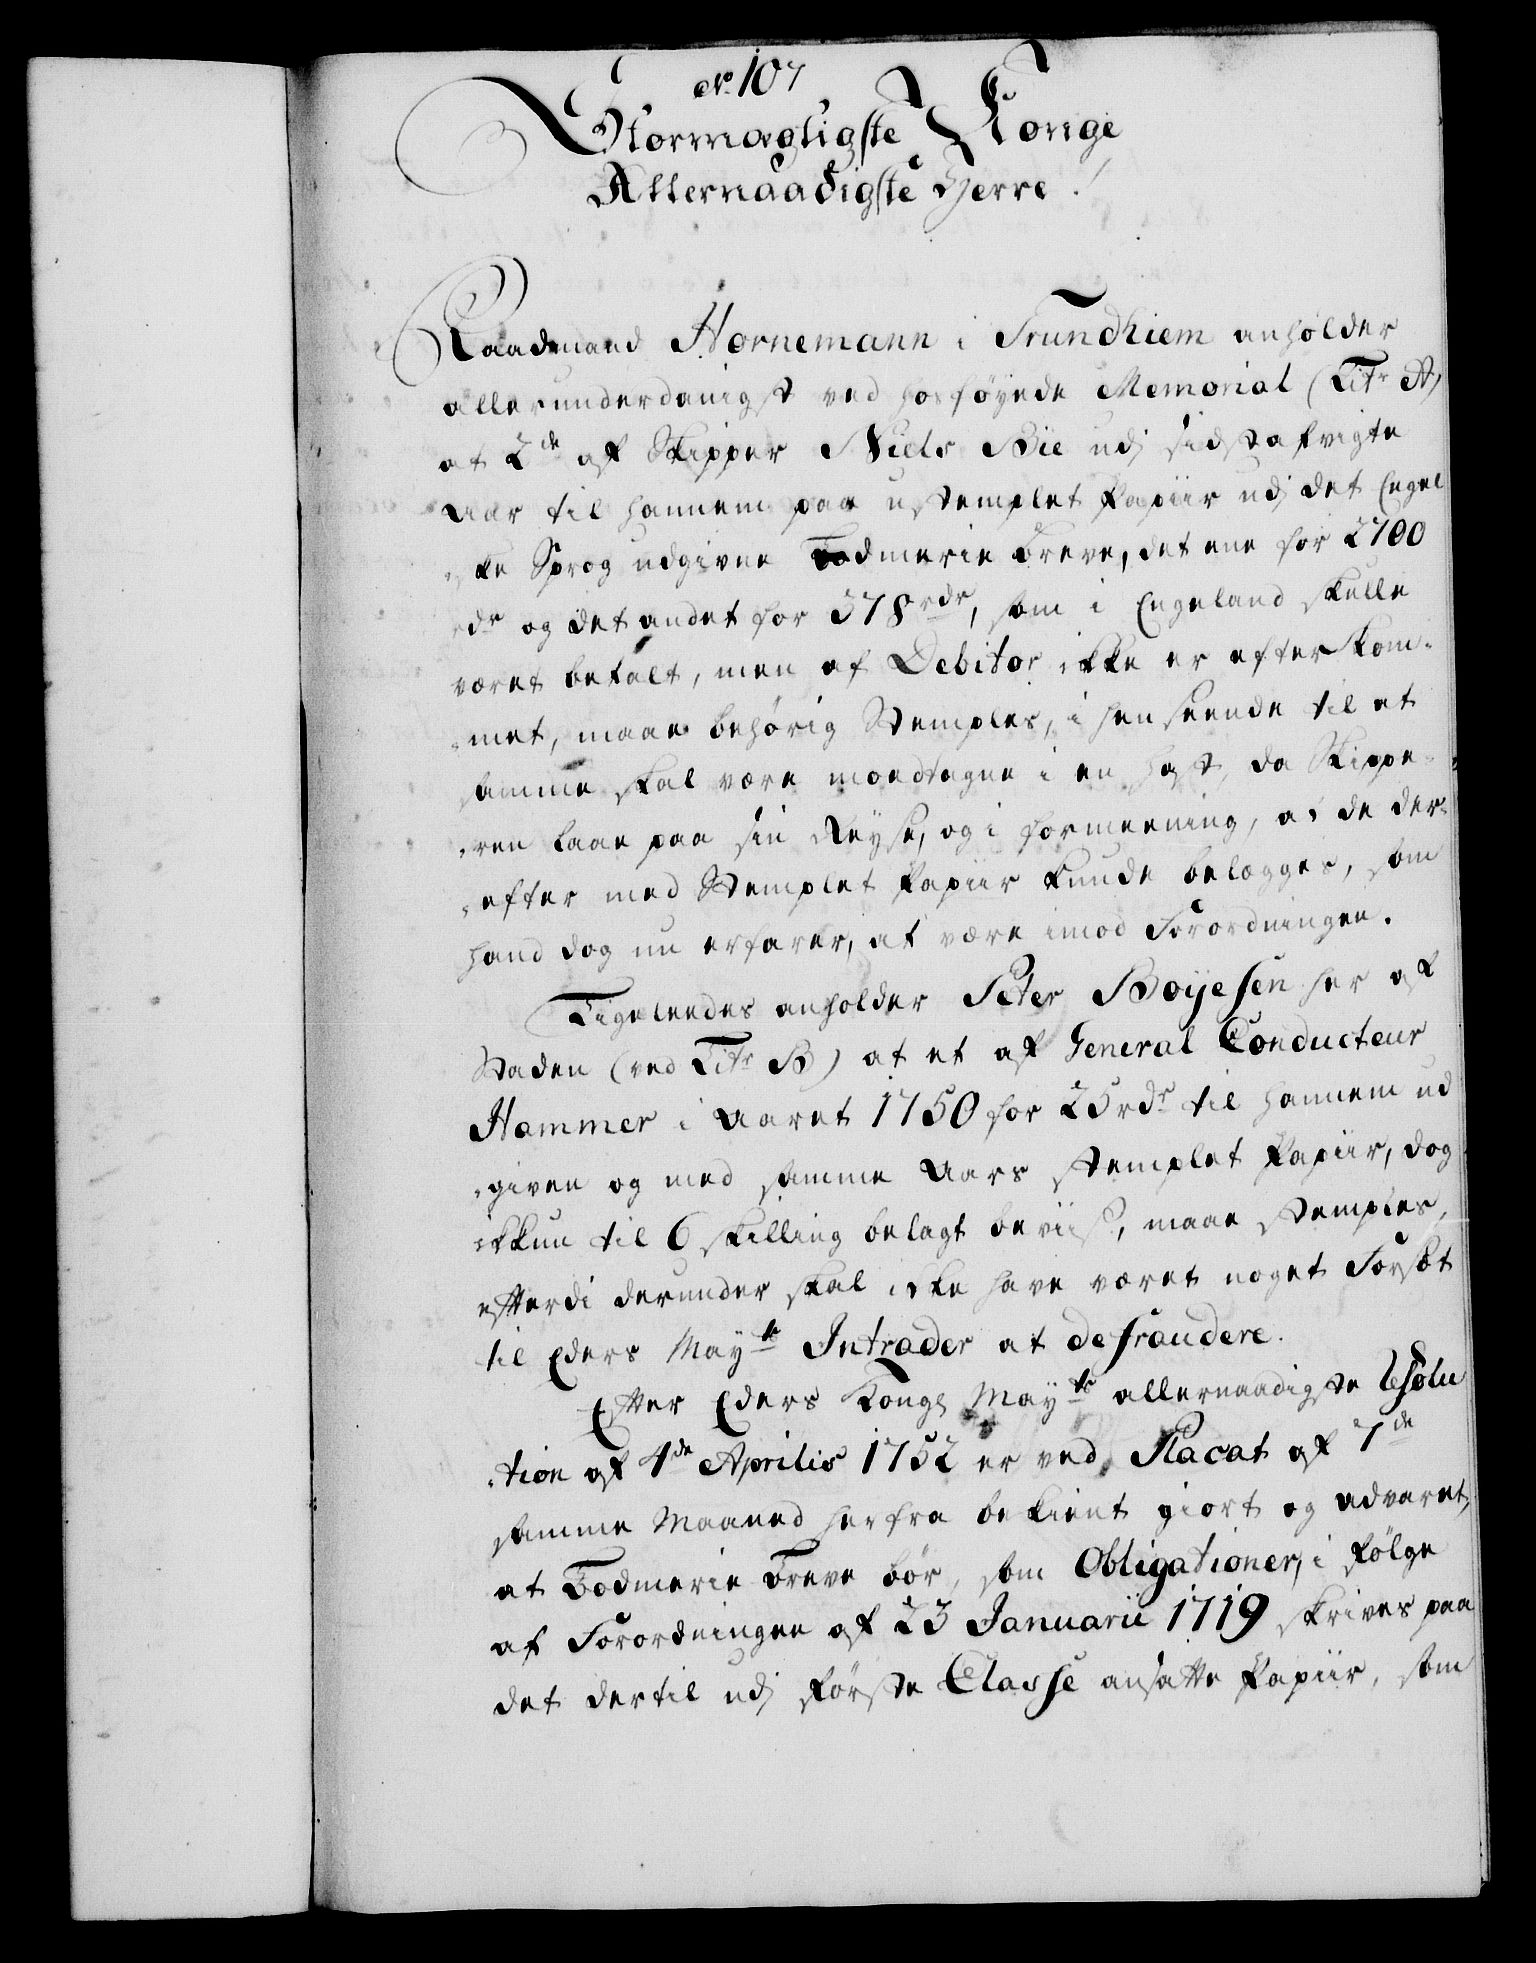 No. 107
Stormægtigste Konge
Allernaadigste Herre!
Raadmand Hornemann i Trundhiem anholder
allerunderdanigst ved hosføyede Memorial (Litr A)
at 2de af Skipper Niels Bie udj sidstafvigte
Aar til hannem paa ustemplet Papiir udj det Engel
ske Sprog udgivne Bodmerie Breve, det ene for 2700
rdr og det andet for 378 rdr, som i Engeland skulle
været betalt, men af Debitor ikke er efterkom-
met, maae behørig Stemples, i henseende til at
samme skal være modtagne i en hast, da Skippe-
ren laae paa sin Reyse, og i formeening, at de der-
efter med Stemplet Papiir kunde belægges, som
hand dog nu erfarer, at være imod Forordningen.
Ligeleedes anholder Peter Boyesen her af
Staden (ved Litr B) at et af General Conducteur
Hammer i Aaret 1750 for 25 rdr til hannem ud
given og med samme Aars stemplet Papiir, dog
ikkun til 6 skilling belagt beviis, maae stemples,
efterdi derunder skal ikke have været noget Forsæt
til Eders Mayts Intrader at defraudere.
Efter Eders Kongl Mayts allernaadigste Resolu
tion af 4de Aprilis 1752 er ved Placat af 7de
samme Maaned herfra bekient giort og advaret,
at Bodmerie Breve bør, som Obligationer, i følge
af Forordningen af 23 Januarii 1719 skrives paa
det dertil udj første Classe ansatte Papiir, som